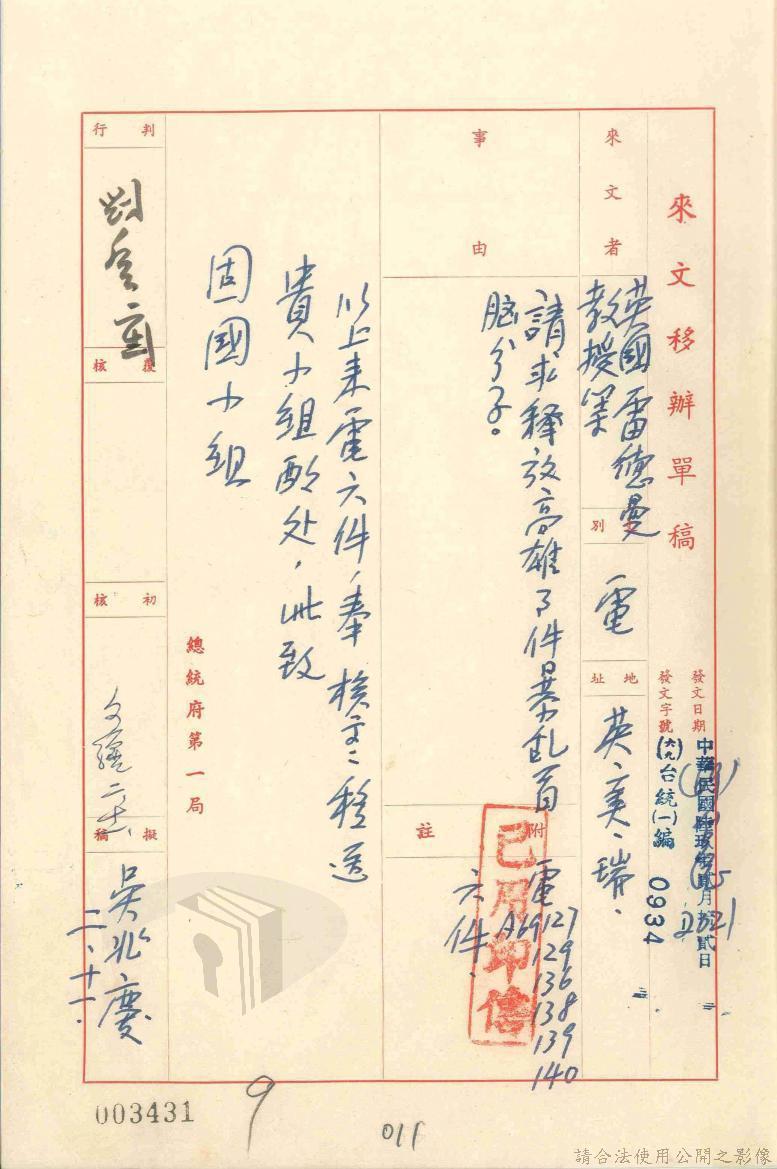 來文移辦單稿
發文日期
中華民國陸玖年貳月拾貳日
發文字號
(六九)台統(一)編 0934
來文者
英國雷德曼
教授等
別
電
地址
英、美、瑞、
事由
請求釋放高雄事件暴乱首
脑分子。
附註
電
六件、
A69127
129
136
138
139
140
已用印信
以上来電六件、奉 核交、移送
貴小組酌处,此致
固國小組
總統府第一局
判行
覆核
初核
擬稿
吳兆慶
二、十一、
003431
9
011
請合法使用公開之影像